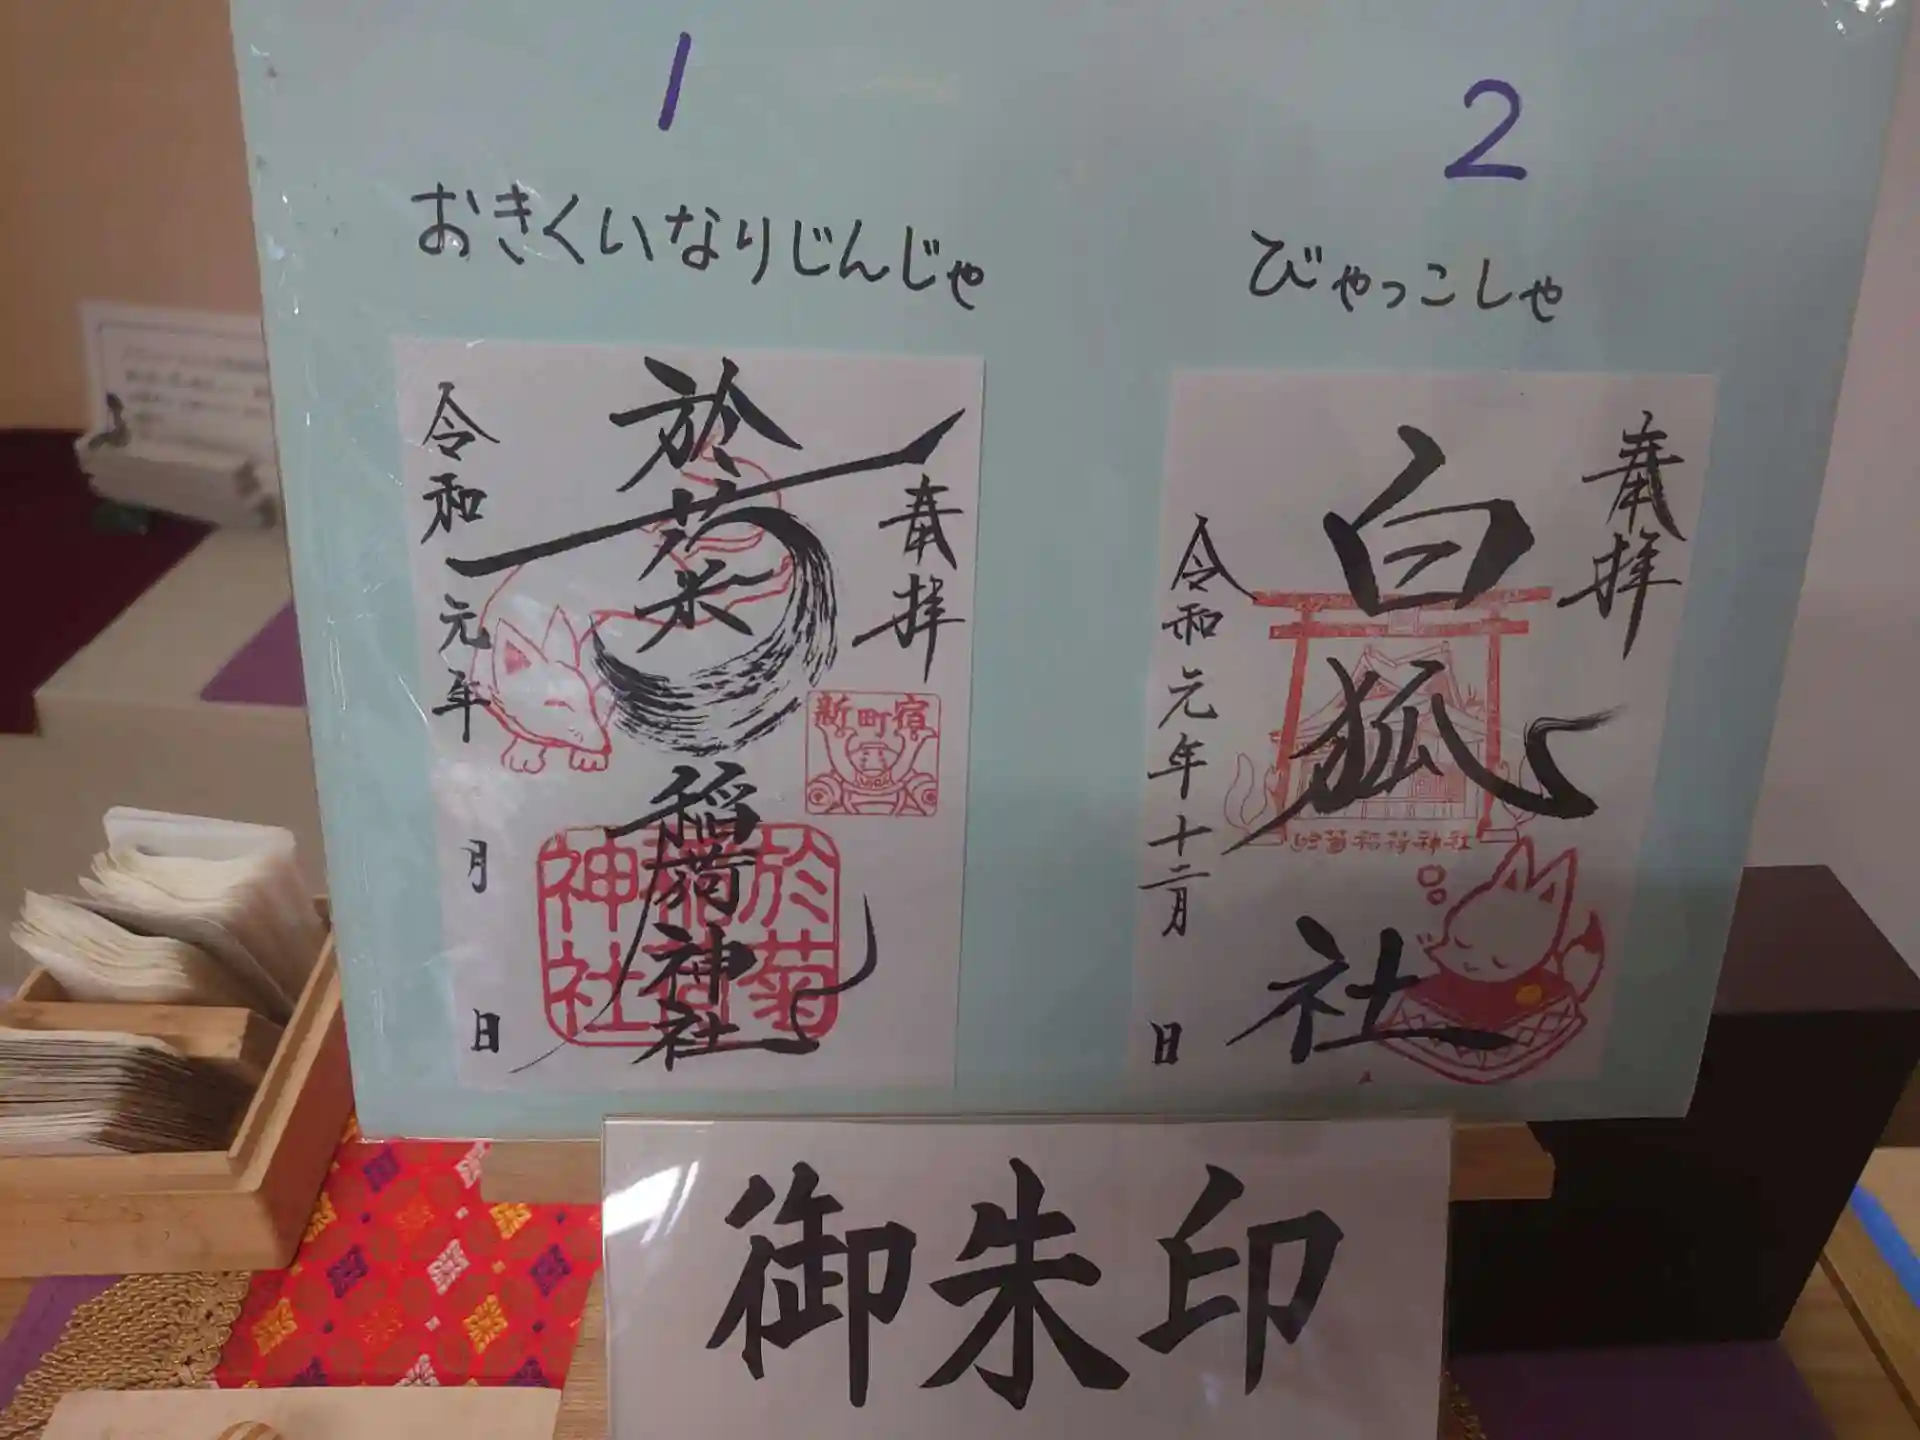 1
おきくいなりじんじゃ
奉拝
於菊
稲荷神社
令和元年
月
日
新町宿
於菊
稲荷
神社
2
びゃっこしゃ
奉拝
白狐社
令和元年十二月
日
於菊稲荷神社
御朱印